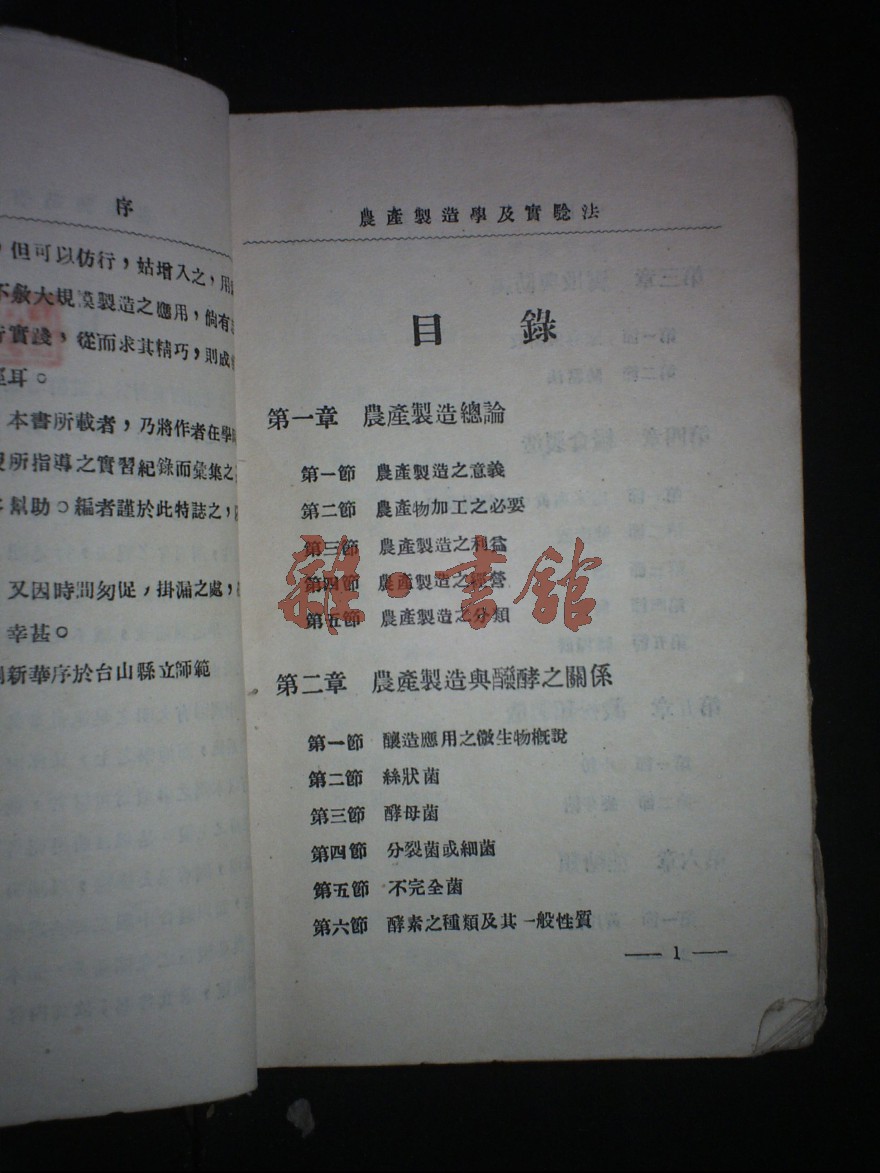 序
，但可以仿行，姑增入之，用
不敷大規模製造之應用，倘有
行實踐，從而求其精巧，則成
耳。
本書所載者，乃將作者在學
所指導之實習紀錄而彙集之
幫助。編者謹於此特誌之，
又因時間匆促，掛漏之處，
幸甚。
新華序於台山縣立師範
農產製造學及實驗法
目錄
第一章 農產製造總論
第一節 農產製造之意義
第二節 農產物加工之必要
第三節 農產製造之利益
第四節 農產製造之經營
第五節 農產製造之分類
雜·書館
第二章 農產製造與醱酵之關係
第一節 釀造應用之微生物概說
第二節 絲狀菌
第三節 酵母菌
第四節 分裂菌或細菌
第五節 不完全菌
第六節 酵素之種類及其一般性質
— 1 —